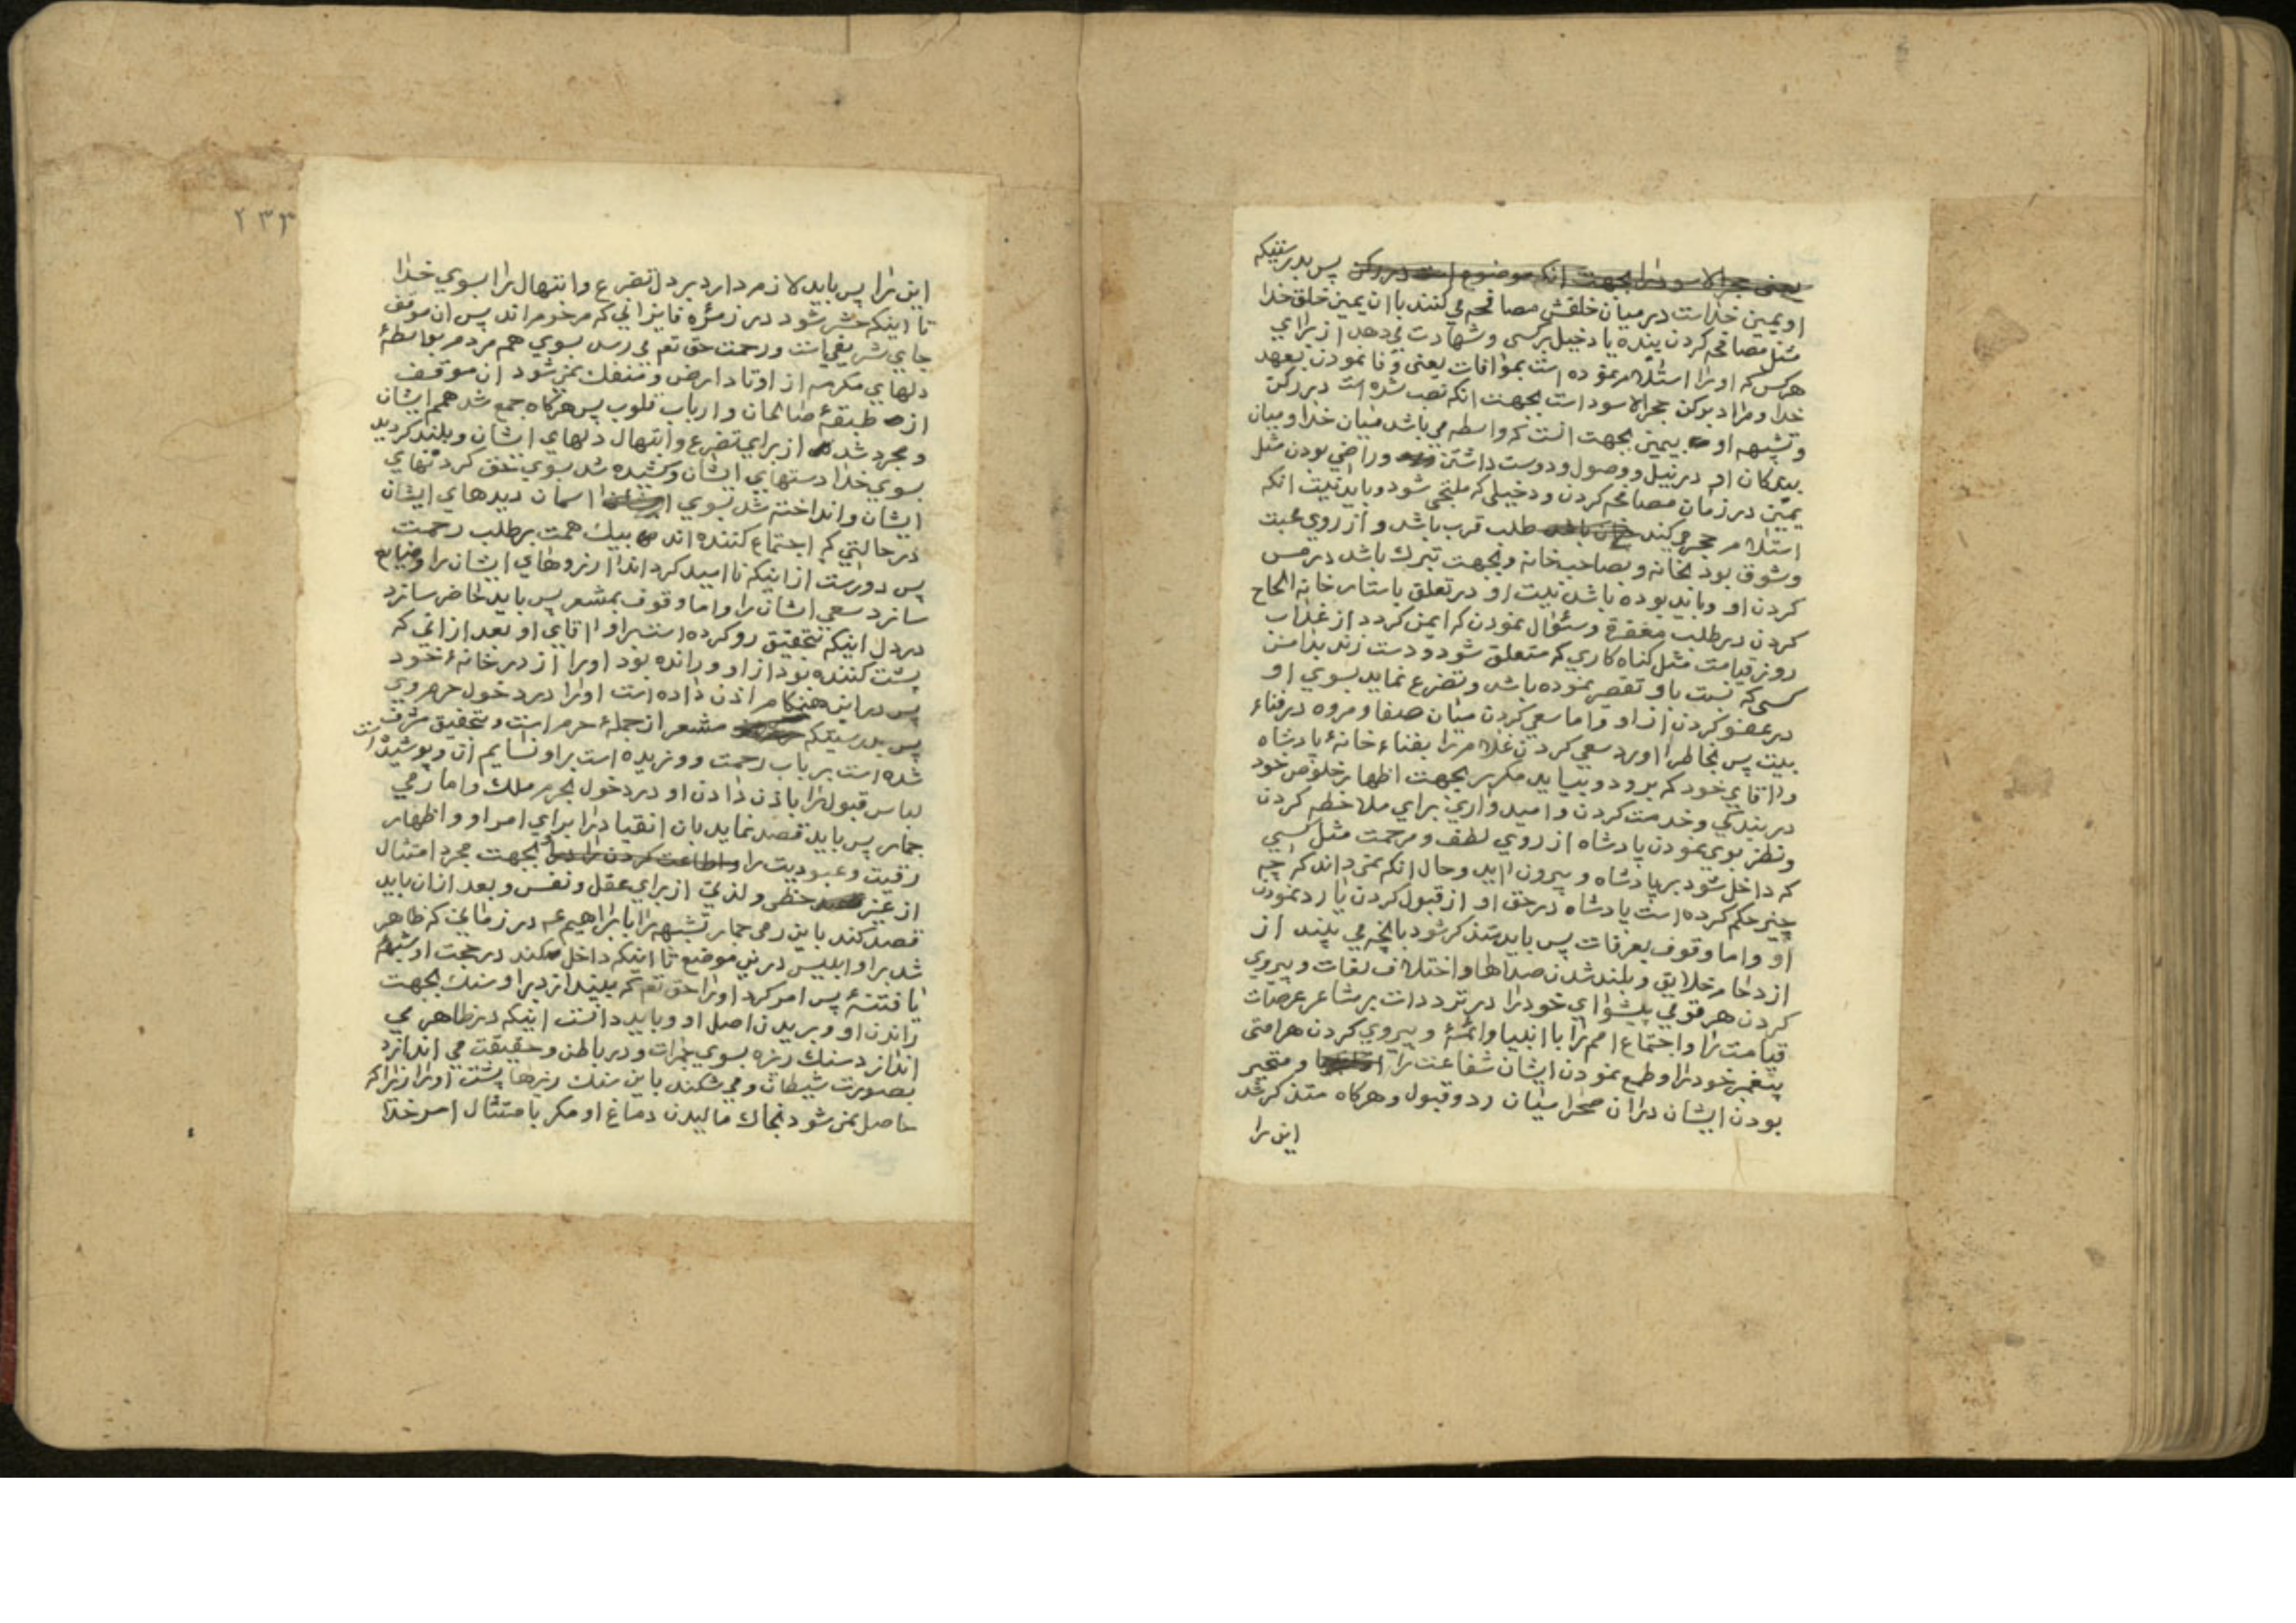 یعنی حجرالاسود را بجهت انکه موضوع است در رکن پس بدرستیکه
او یمین خداست در میان خلقش مصافحه می کنند با ان یمین خلق خدا
مثل مصافحه کردن بنده یا دخیل برکسی و شهادت می دهد از برای
هرکس که او را استلام نموده است بموافات یعنی وفا نمودن بعهد
خدا و مراد برکن حجرالاسود است بجهت انکه نصب شده است در رکن
و تشبیه او بیمین بجهت انست که واسطه می باشد میان خدا و میان
بندکان او در نیل و وصول و دوست داشتن و راضی بودن مثل
یمین در زمان مصافحه کردن و دخیلی که ملتجی شود و باید نیت انکه
استلام حجر می کند طلب قرب باشد و از روی محبت
و شوق بود بخانه و بصاحب خانه و بجهت تبرک باشد در مس
کردن او و باید بوده باشد نیت او در تعلق باستار خانه الحاح
کردن در طلب مغفرة و سئوال نمودن که ایمن کردد از عذاب
روز قیامت مثل کناه کاری که متعلق شود و دست زند بدامن
کسی که نسبت باو تقصیر نموده باشد و تضرع نماید بسوی او
در عفو کردن از او و اما سعی کردن میان صفا و مروه در فناء
بیت پس بخاطر اورد سعی کردن غلام را بفناء خانهٔ پادشاه
و اقای خود که برود و بیاید مکرر بجهت اظهار خلوص خود
در بندکی و خدمت کردن و امیدواری برای ملاحظه کردن
و نظر بوی نمودن پادشاه از روی لطف و مرحمت مثل کسی
که داخل شود بر پادشاه و بیرون اید و حال انکه نمی داند که چه
چیز حکم کرده است پادشاه در حق او از قبول کردن یا رد نمودن
او و اما وقوف بعرفات پس باید متذکر شود بانچه می بیند از
ازدحام خلایق و بلند شدن صداها و اختلاف لغات و پیروی
کردن هر قومی پیشوای خود را در ترددات بر مشاعر عرصات
قیامت را و اجتماع امم را با انبیا و ائمهٔ و پیروی کردن هر امتی
پیغمبر خود را و طمع نمودن ایشان شفاعت را و متحیر
بودن ایشان در ان صحرا میان رد و قبول و هرکاه متذکر شد
این را
۲۳۳
این را پس باید لازم دارد بر دل تضرع و ابتهال را بسوی خدا
تا اینکه حشر شود در زمرهٔ فایزانی که مرحوم اند پس ان موقف
جای شریفی است و رحمت حق تع می رسد بسوی همه مردم بواسطهٔ
دلهای مکرمه از اوتاد ارض و منفک نمی شود ان موقف
از طبقهٔ صالحان و ارباب قلوب پس هرکاه جمع شد همم ایشان
و مجرد شد از برای تضرع و ابتهال دلهای ایشان و بلند کردید
بسوی خدا دستهای ایشان و کشیده شد بسوی کردنهای
ایشان و انداخته شد بسوی اسمان دیدهای ایشان
در حالتی که اجتماع کننده اند بیک همت بر طلب رحمت
پس دور است از اینکه ناامید کرداند ارزوهای ایشان را و ضایع
سازد سعی ایشان را و اما وقوف بمشعر پس باید حاضر سازد
در دل اینکه بتحقیق رو کرده است بر او اقای او بعد از انی که
پشت کننده بود از او و رانده بود او را از در خانهٔ خود
پس در این هنکام اذن داده است او را در دخول حرم وی
پس بدرستیکه مشعر از جملهٔ حرم است و بتحقیق مشرف
شده است بر باب رحمت و وزیده است بر او نسایم ان و پوشیده است
لباس قبول را باذن دادن او در دخول بحرم ملک و اما رمی
جمار پس باید قصد نماید بان انقیاد را برای امر او و اظهار
رقیت و عبودیت را و اطاعت کردن را بجهت مجرد امتثال
از غیر حظی و لذتی از برای عقل و نفس و بعد از ان باید
قصد کند باین رمی جمار تشبیه را بابراهیم ع در زمانی که ظاهر
شد بر او ابلیس در این موضع تا اینکه داخل کند در حجت او شبهه
یا فتنهٔ پس امر کرد او را حق تع که بیندازد بر او سنک بجهت
راندن او و بریدن اصل او و باید دانست اینکه در ظاهر می
اندازد سنک ریزه بسوی جمرات و در باطن و حقیقت می اندازد
بصورت شیطان و می شکند باین سنک ریزها پشت او را زیرا که
حاصل نمی شود بخاک مالیدن دماغ او مکر بامتثال امر خدا